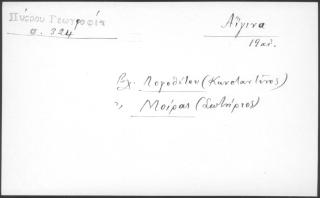 Πύρρου Γεωγραφία
σ. 324
Αἴγινα
19 αἰ.
Βλ. Λογοθέτου (Κωνσταντῖνος)
" Μοίρας (Σωτήριος)